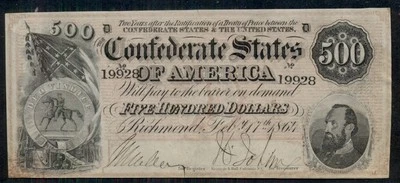 Two Years after the Ratification of a Treaty of Peace between the
CONFEDERATE STATES & THE UNITED STATES,
500
Confederate States
500
19928
OF AMERICA
19928
Will pay to the bearer on demand
FIVE HUNDRED DOLLARS
Richmond, Feb. 17th 1864